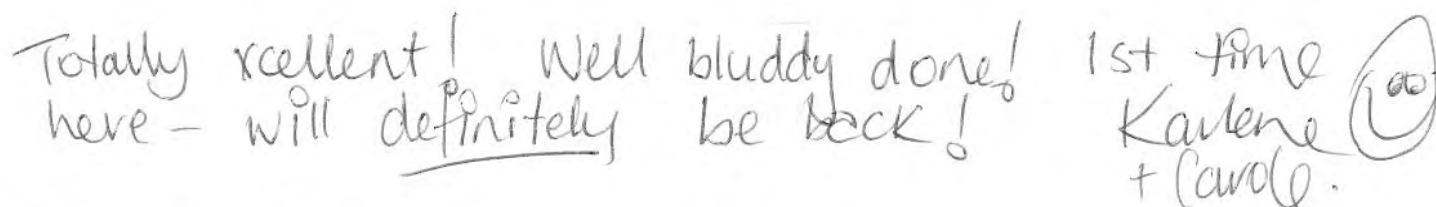 Totally xcellent! Well bluddy done! 1st time
here – will definitely be back! Karlene
+ Carole.